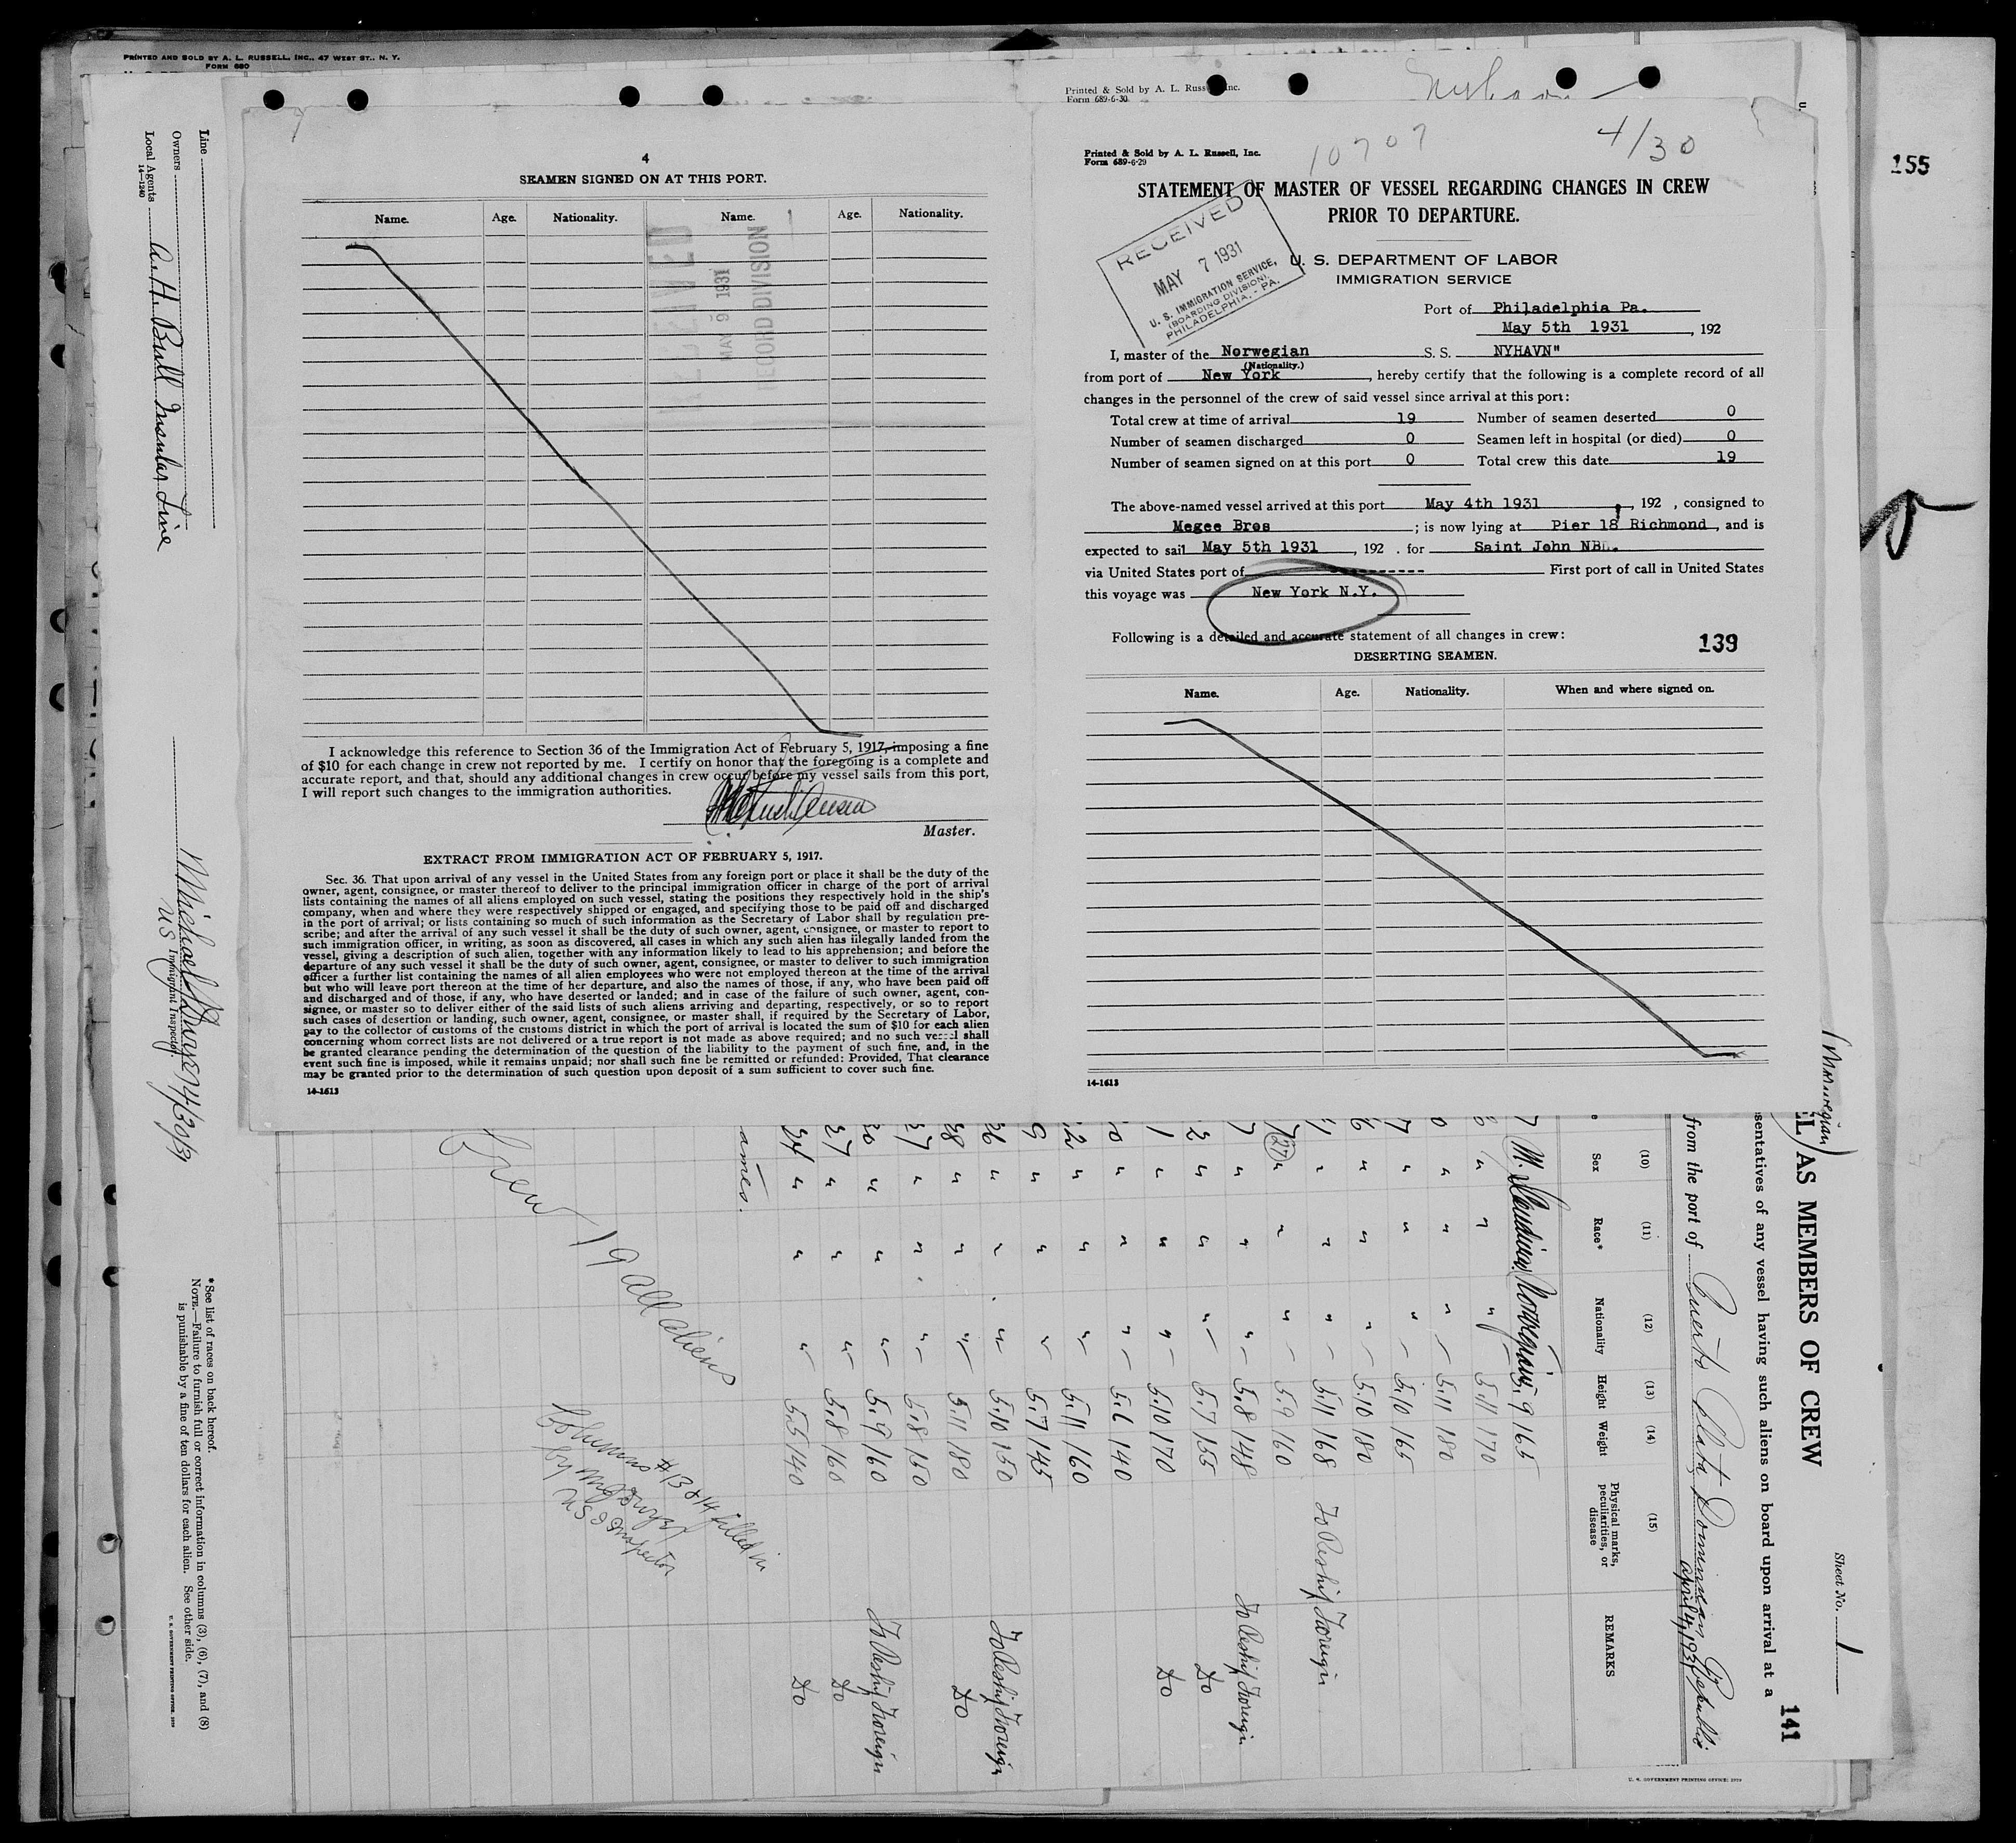 PRINTED AND SOLD BY A. L. RUSSELL, INC., 47 WEST ST., N. Y.
FORM 680
Line
Owners
Local Agents A. H. Bull Insular Line
14-1240
Immigrant Inspector
US
4/30/31
*See list of races on back hereof.
NOTE.—Failure to furnish full or correct information in columns (3), (6), (7), and (8)
is punishable by a fine of ten dollars for each alien. See other side.
4
SEAMEN SIGNED ON AT THIS PORT.
Name. Age. Nationality. Name. Age. Nationality.
RECEIVED
MAY 9 1931
RECORD DIVISION
I acknowledge this reference to Section 36 of the Immigration Act of February 5, 1917, imposing a fine
of $10 for each change in crew not reported by me. I certify on honor that the foregoing is a complete and
accurate report, and that, should any additional changes in crew occur before my vessel sails from this port,
I will report such changes to the immigration authorities.
Master.
EXTRACT FROM IMMIGRATION ACT OF FEBRUARY 5, 1917.
Sec. 36. That upon arrival of any vessel in the United States from any foreign port or place it shall be the duty of the
owner, agent, consignee, or master thereof to deliver to the principal immigration officer in charge of the port of arrival
lists containing the names of all aliens employed on such vessel, stating the positions they respectively hold in the ship's
company, when and where they were respectively shipped or engaged, and specifying those to be paid off and discharged
in the port of arrival; or lists containing so much of such information as the Secretary of Labor shall by regulation pre-
scribe; and after the arrival of any such vessel it shall be the duty of such owner, agent, consignee, or master to report to
such immigration officer, in writing, as soon as discovered, all cases in which any such alien has illegally landed from the
vessel, giving a description of such alien, together with any information likely to lead to his apprehension; and before the
departure of any such vessel it shall be the duty of such owner, agent, consignee, or master to deliver to such immigration
officer a further list containing the names of all alien employees who were not employed thereon at the time of the arrival
but who will leave port thereon at the time of her departure, and also the names of those, if any, who have been paid off
and discharged and of those, if any, who have deserted or landed; and in case of the failure of such owner, agent, con-
signee, or master so to deliver either of the said lists of such aliens arriving and departing, respectively, or so to report
such cases of desertion or landing, such owner, agent, consignee, or master shall, if required by the Secretary of Labor,
pay to the collector of customs of the customs district in which the port of arrival is located the sum of $10 for each alien
concerning whom correct lists are not delivered or a true report is not made as above required; and no such vessel shall
be granted clearance pending the determination of the question of the liability to the payment of such fine, and, in the
event such fine is imposed, while it remains unpaid; nor shall such fine be remitted or refunded: Provided, That clearance
may be granted prior to the determination of such question upon deposit of a sum sufficient to cover such fine.
14-1613
Printed & Sold by A. L. Russ Inc.
Form 689-6-30
Nyhavn
10707
4/30
Printed & Sold by A. L. Russell, Inc.
Form 689-6-29
STATEMENT OF MASTER OF VESSEL REGARDING CHANGES IN CREW
PRIOR TO DEPARTURE.
RECEIVED
MAY 7 1931
U. S. IMMIGRATION SERVICE,
(BOARDING DIVISION),
PHILADELPHIA, - PA.
U. S. DEPARTMENT OF LABOR
IMMIGRATION SERVICE
Port of Philadelphia Pa.
May 5th 1931, 192
I, master of the Norwegian S. S. NYHAVN"
(Nationality.)
from port of New York, hereby certify that the following is a complete record of all
changes in the personnel of the crew of said vessel since arrival at this port:
Total crew at time of arrival 19 Number of seamen deserted 0
Number of seamen discharged 0 Seamen left in hospital (or died) 0
Number of seamen signed on at this port 0 Total crew this date 19
The above-named vessel arrived at this port May 4th 1931, 192 , consigned to
Megee Bros; is now lying at Pier 18 Richmond, and is
expected to sail May 5th 1931, 192 . for Saint John NB.
via United States port of ---------- First port of call in United States
this voyage was New York N.Y.
Following is a detailed and accurate statement of all changes in crew:
139
DESERTING SEAMEN.
Name. Age. Nationality. When and where signed on.
14-1613
155
Sheet No. 1
141
(Norwegian)
EL) AS MEMBERS OF CREW
sentatives of any vessel having such aliens on board upon arrival at a
from the port of Puerto Plata, Dominican Republic
April 1931
(10) (11) (12) (13) (14) (15)
Sex Race* Nationality Height Weight Physical marks, peculiarities, or disease REMARKS
M. Scandinav. Norwegian 5.9 165
" " " 5.11 170
" " " 5.11 180
" " " 5.10 165
" " " 5.10 180
" " " 5.11 168 To Reship Foreign
" " " 5.9 160
" " " 5.8 148 To Reship Foreign
" " " 5.7 155 Do
" " " 5.10 170 Do
" " " 5.6 140
" " " 5.11 160
" " " 5.7 145
" " " 5.10 150 To Reship Foreign
" " " 5.11 180 Do
" " " 5.8 150
" " " 5.9 160 To Reship Foreign
" " " 5.8 160 Do
" " " 5.5 140 Do
Crew 19 all aliens
Columns #13 & 14 filled in
by
US Inspector
U. S. GOVERNMENT PRINTING OFFICE: 1929